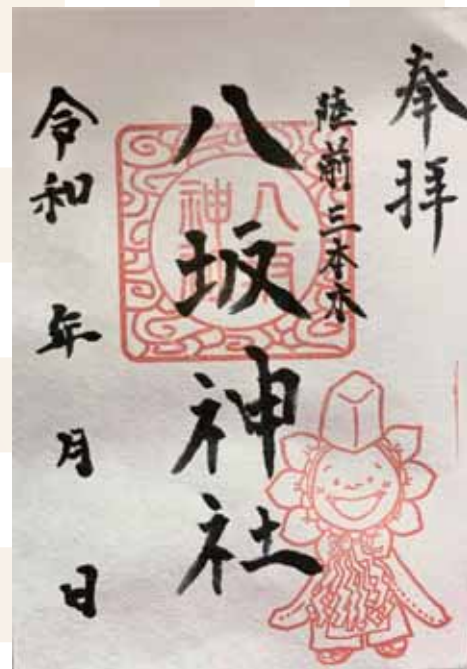 奉拝
陸前三本木
八坂神社
八坂
神社
令和 年 月 日